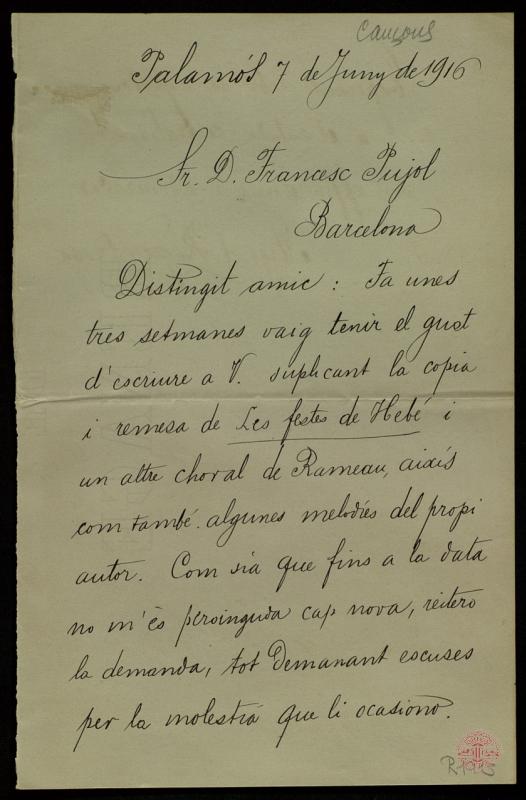 Cançons
Palamós 7 de Juny de 1916
Sr. D. Francesc Pujol
Barcelona
Distingit amic: Fa unes
tres setmanes vaig tenir el gust
d'escriure a V. suplicant la copia
i remesa de Les festes de Hebé i
un altre choral de Rameau, aixís
com també algunes melodíes del propi
autor. Com sía que fins a la data
no m'és pervinguda cap nova, reitero
la demanda, tot demanant escuses
per la molestía que li ocasiono.